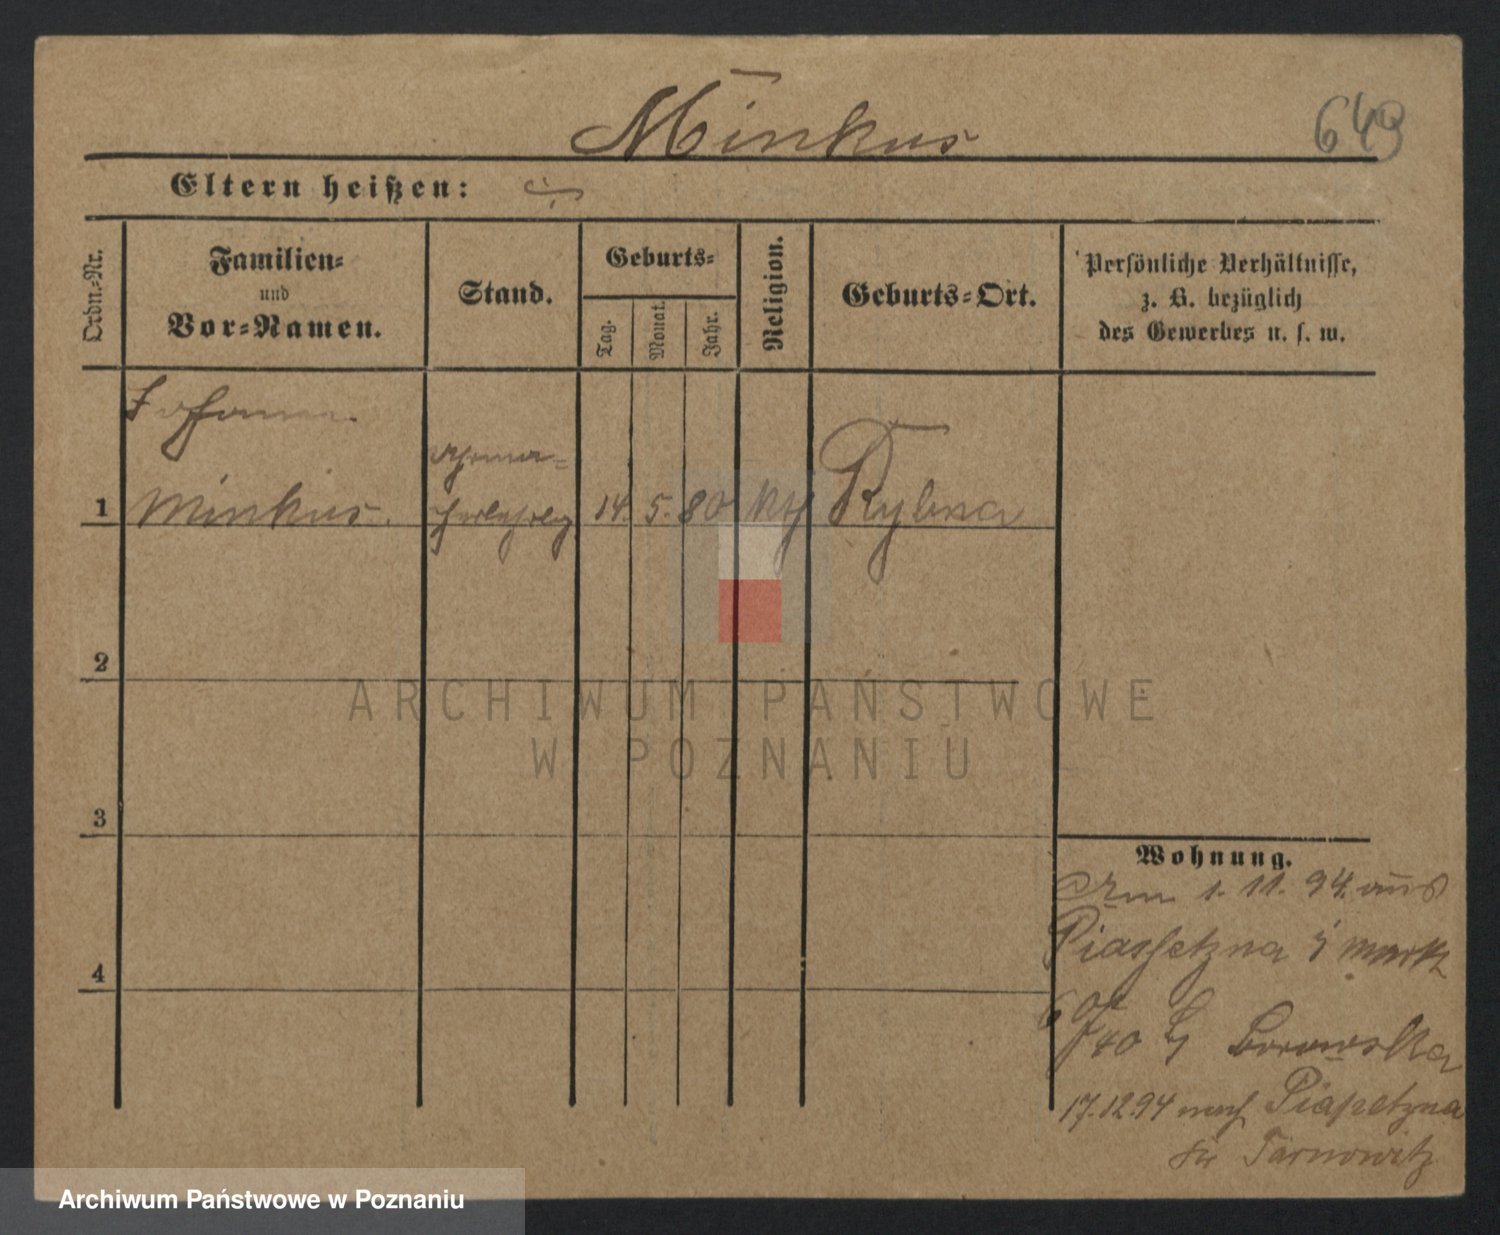 Minkus
649
Eltern heißen:
Ordn.-Nr.
Familien-
und
Vor-Namen.
Stand.
Geburts-
Tag.
Monat.
Jahr.
Religion.
Geburts-Ort.
Persönliche Verhältnisse,
z. B. bezüglich
des Gewerbes u. s. w.
1
Minkus.
14. 5. 80
kth
Rybna
2
3
4
Wohnung.
1. 11. 94. aus
Piassetzna
40 Borowska
17.12.94 nach Piassetzna
Kr Tarnowitz
ARCHIWUM PAŃSTWOWE
W POZNANIU
Archiwum Państwowe w Poznaniu